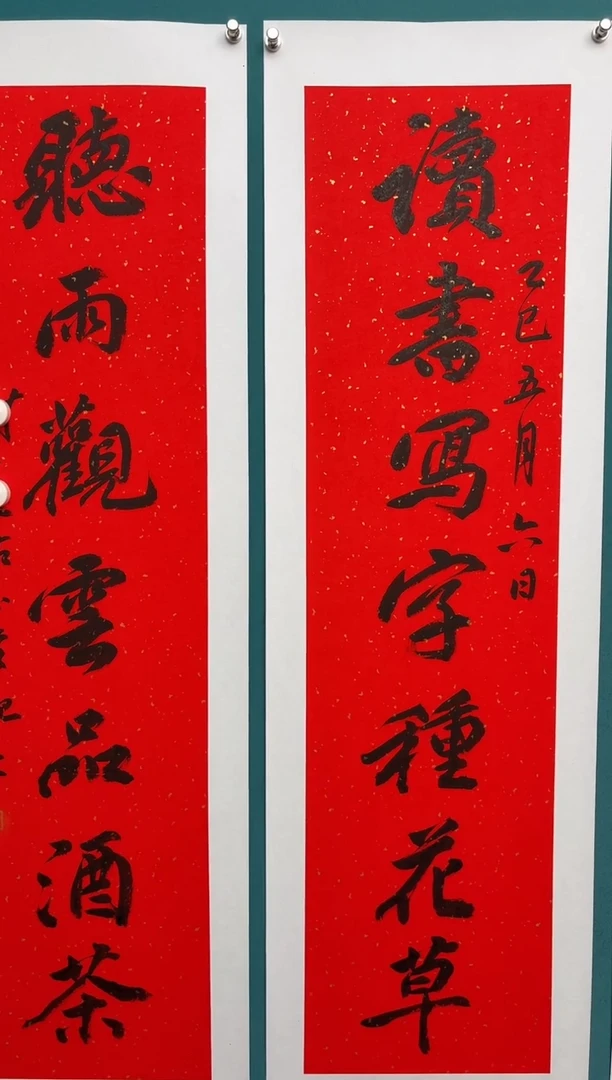 讀書寫字種花草
乙巳五月六日
聽雨觀雲品酒茶